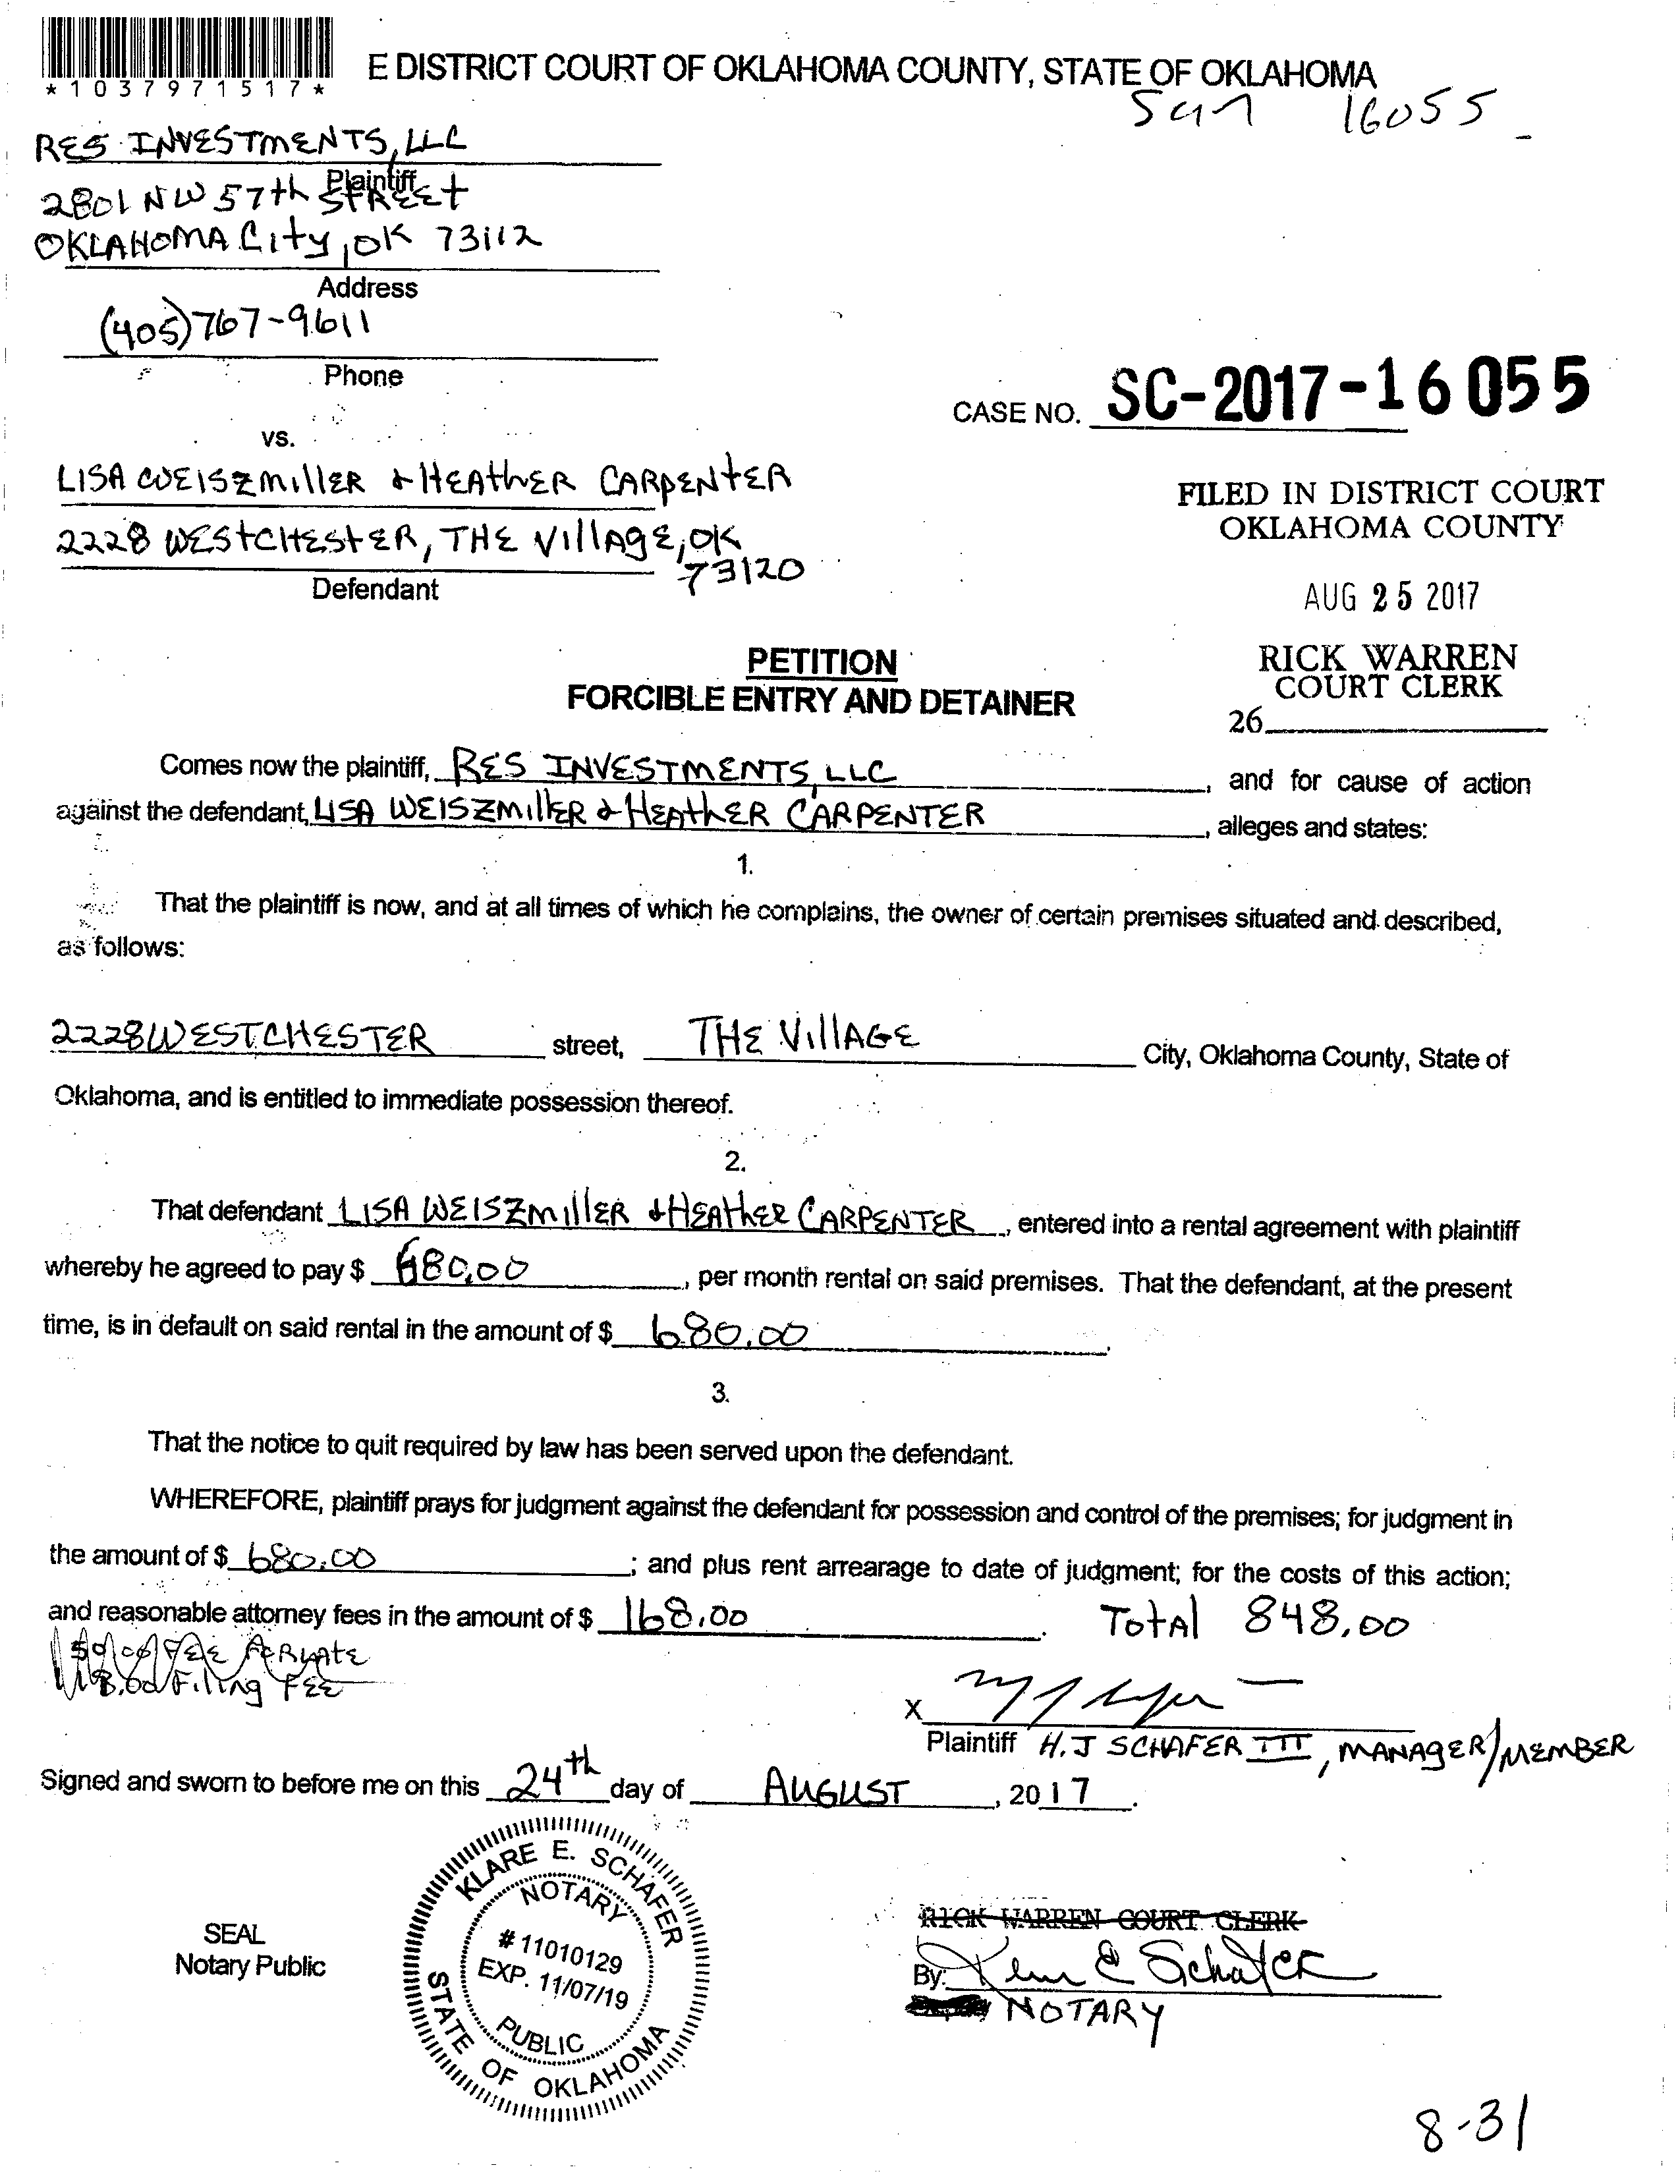 *1037971517*
E DISTRICT COURT OF OKLAHOMA COUNTY, STATE OF OKLAHOMA
16055
RES INVESTMENTS, LLC
Plaintiff
2801 NW 57th STREET
OKLAHOMA City, OK 73112
Address
(405) 767-9611
Phone
CASE NO. SC-2017-16055
vs.
LISA WEISZMILLER & HEATHER CARPENTER
2228 WESTCHESTER, THE VILLAGE, OK
73120
Defendant
FILED IN DISTRICT COURT
OKLAHOMA COUNTY
AUG 25 2017
RICK WARREN
COURT CLERK
26
PETITION
FORCIBLE ENTRY AND DETAINER
Comes now the plaintiff, RES INVESTMENTS, LLC, and for cause of action
against the defendant, LISA WEISZMILLER & HEATHER CARPENTER, alleges and states:
1.
That the plaintiff is now, and at all times of which he complains, the owner of certain premises situated and described,
as follows:
2228 WESTCHESTER street, THE VILLAGE City, Oklahoma County, State of
Oklahoma, and is entitled to immediate possession thereof.
2.
That defendant LISA WEISZMILLER & HEATHER CARPENTER, entered into a rental agreement with plaintiff
whereby he agreed to pay $ 680.00, per month rental on said premises. That the defendant, at the present
time, is in default on said rental in the amount of $ 680.00.
3.
That the notice to quit required by law has been served upon the defendant.
WHEREFORE, plaintiff prays for judgment against the defendant for possession and control of the premises; for judgment in
the amount of $ 680.00; and plus rent arrearage to date of judgment; for the costs of this action;
and reasonable attorney fees in the amount of $ 168.00. Total 848.00
Filing FEE
X
Plaintiff H. J SCHAFER III, MANAGER/MEMBER
Signed and sworn to before me on this 24th day of AUGUST, 2017.
KLARE E. SCHAFER
NOTARY
# 11010129
EXP. 11/07/19
PUBLIC
STATE OF OKLAHOMA
SEAL
Notary Public
RICK WARREN COURT CLERK
By: E Schafer
NOTARY
8-31